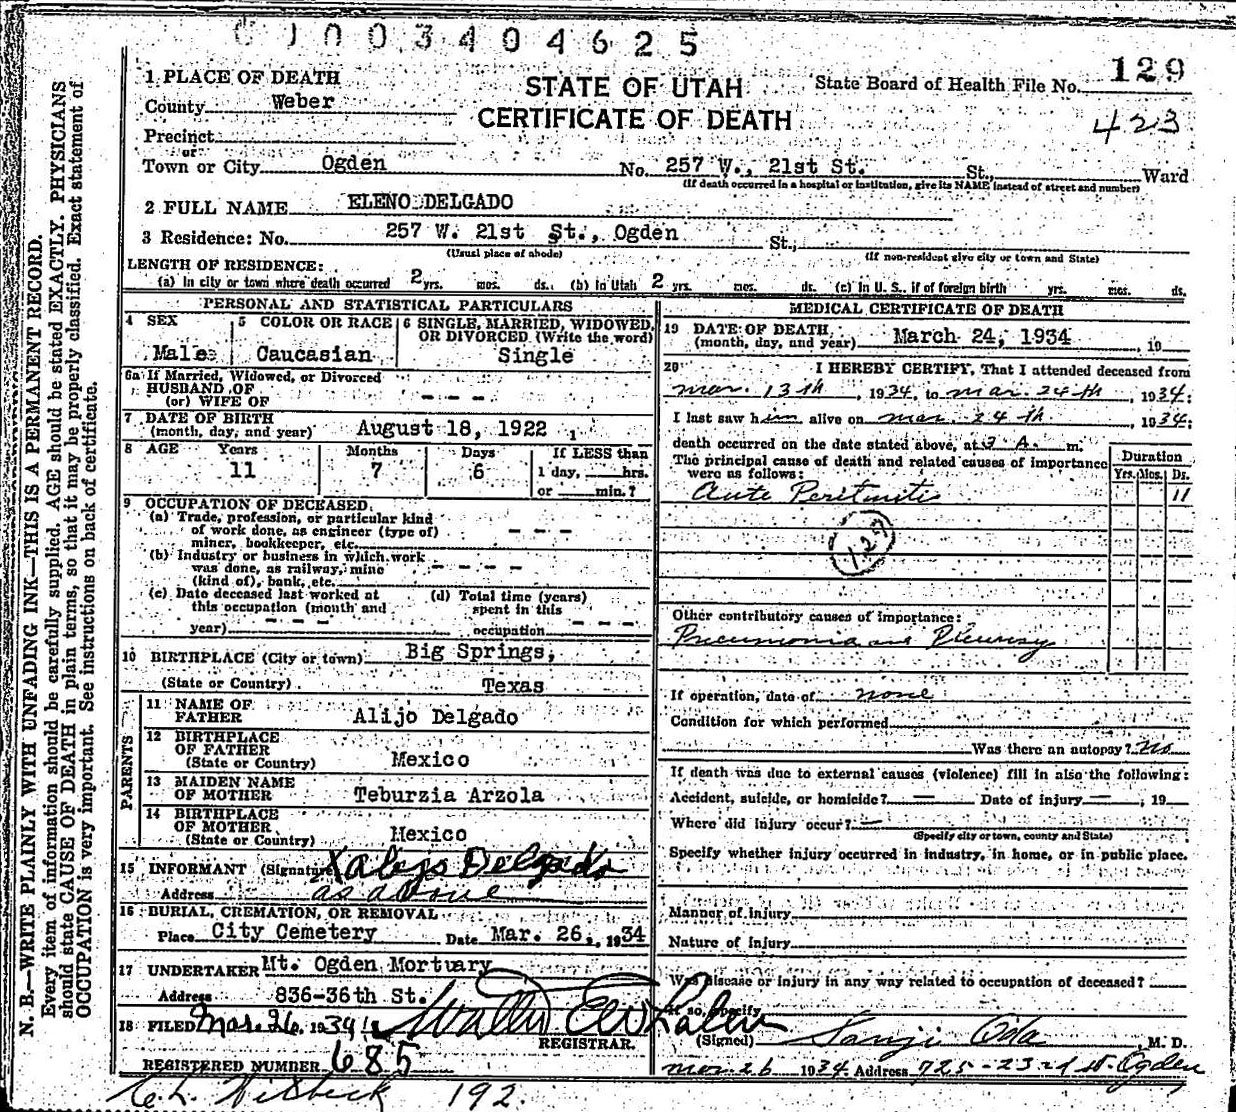 0100 3404625
1 PLACE OF DEATH
STATE OF UTAH
State Board of Health File No. 129
County Weber
CERTIFICATE OF DEATH
423
Precinct
or
Town or City Ogden No. 257 W., 21st St. St., Ward
(If death occurred in a hospital or institution, give its NAME instead of street and number)
2 FULL NAME ELENO DELGADO
3 Residence: No. 257 W. 21st St., Ogden St.,
(Usual place of abode) (If non-resident give city or town and State)
LENGTH OF RESIDENCE:
(a) In city or town where death occurred 2 yrs. mos. ds. (b) In Utah 2 yrs. mos. ds. (c) In U. S., if of foreign birth yrs. mos. ds.
PERSONAL AND STATISTICAL PARTICULARS
4 SEX 5 COLOR OR RACE 6 SINGLE, MARRIED, WIDOWED, OR DIVORCED (Write the word)
Male Caucasian Single
6a If Married, Widowed, or Divorced
HUSBAND OF
(or) WIFE OF - - -
7 DATE OF BIRTH
(month, day, and year) August 18, 1922
8 AGE Years Months Days If LESS than
11 7 6 1 day, hrs.
or min.?
9 OCCUPATION OF DECEASED
(a) Trade, profession, or particular kind
of work done, as engineer (type of)
miner, bookkeeper, etc. - - -
(b) Industry or business in which work
was done, as railway, mine
(kind of), bank, etc. - - - -
(c) Date deceased last worked at
this occupation (month and
year) - - -
(d) Total time (years)
spent in this
occupation - - -
10 BIRTHPLACE (City or town) Big Springs,
(State or Country) Texas
PARENTS
11 NAME OF
FATHER Alijo Delgado
12 BIRTHPLACE
OF FATHER
(State or Country) Mexico
13 MAIDEN NAME
OF MOTHER Teburzia Arzola
14 BIRTHPLACE
OF MOTHER
(State or Country) Mexico
15 INFORMANT (Signature) X Alejo Delgado
Address as above
16 BURIAL, CREMATION, OR REMOVAL
Place City Cemetery Date Mar. 26, 1934
17 UNDERTAKER Mt. Ogden Mortuary
Address 836-36th St.
18 FILED Mar. 26, 1934
REGISTRAR.
REGISTERED NUMBER 685
192
MEDICAL CERTIFICATE OF DEATH
19 DATE OF DEATH
(month, day, and year) March 24, 1934, 19
20 I HEREBY CERTIFY, That I attended deceased from
Mar. 13th, 1934, to Mar. 24th, 1934;
I last saw him alive on Mar. 24th, 1934;
death occurred on the date stated above, at 3 A. m.
The principal cause of death and related causes of importance
were as follows:
Duration
Yrs. Mos. Ds.
Acute Peritonitis 11
129
Other contributory causes of importance:
Pneumonia and Pleurisy
If operation, date of none
Condition for which performed
Was there an autopsy? No
If death was due to external causes (violence) fill in also the following:
Accident, suicide, or homicide? — Date of injury —, 19
Where did injury occur? —
(Specify city or town, county and State)
Specify whether injury occurred in industry, in home, or in public place.
Manner of injury
Nature of injury
Was disease or injury in any way related to occupation of deceased?
If so, specify
(Signed) Sanji Oda, M. D.
Mar. 26 1934 Address 725-23rd St. Ogden
N. B.—WRITE PLAINLY WITH UNFADING INK—THIS IS A PERMANENT RECORD.
Every item of information should be carefully supplied. AGE should be stated EXACTLY. PHYSICIANS
should state CAUSE OF DEATH in plain terms, so that it may be properly classified. Exact statement of
OCCUPATION is very important. See instructions on back of certificate.